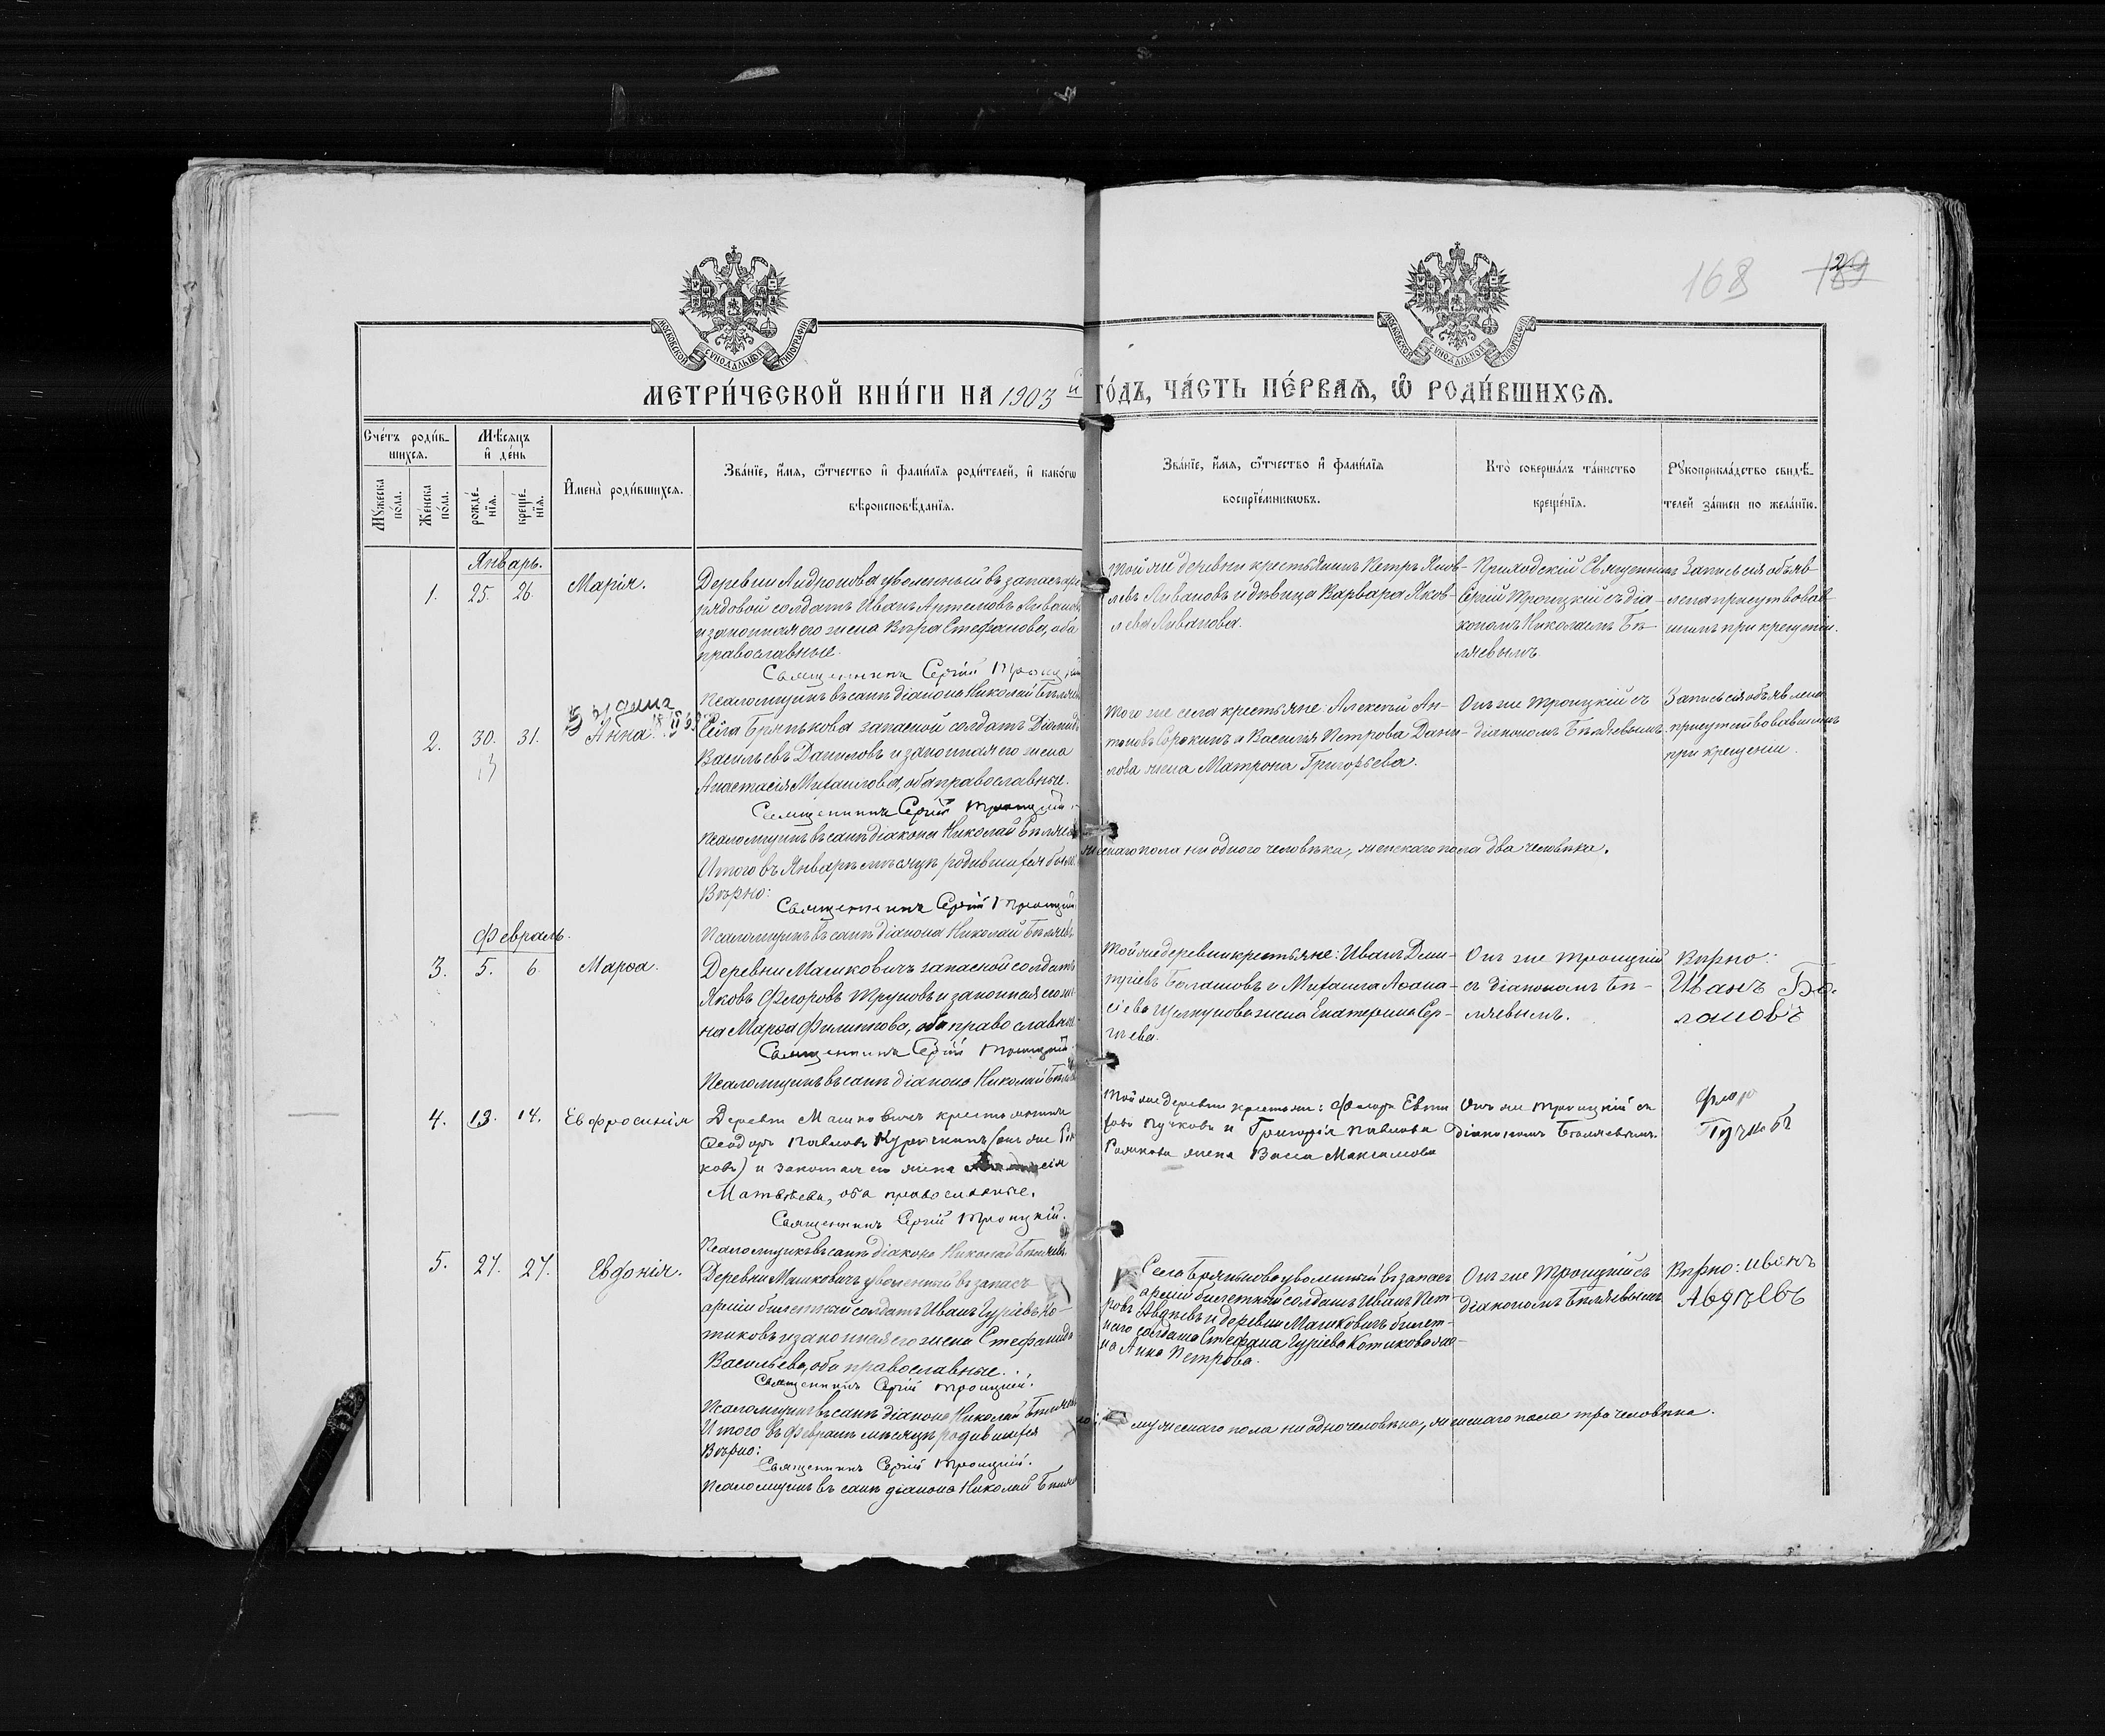 168
МОСКОВСКОЙ СУНОДАЛЬНОЙ ТИПОГРАФІИ
МОСКОВСКОЙ СУНОДАЛЬНОЙ ТИПОГРАФІИ
МЕТРИ́ЧЕСКОЙ КНИ́ГИ НА 1903 й ГО́ДЪ, ЧА́СТЬ ПЕ́РВАѦ, Ѽ РОДИ́ВШИХСѦ.
Сче́тъ роди́в-
шихсѧ.
Мꙋ́жеска по́ла.
Же́нска по́ла.
Мѣ́сѧцъ
и҆ де́нь
рожде́-
нїѧ.
креще́-
нїѧ.
И҆мена̀ роди́вшихсѧ.
Зва́нїе, и҆́мѧ, ѻ҆́тчество и҆ фами́лїѧ роди́телей, и҆ како́гѡ
вѣроисповѣ́данїѧ.
Зва́нїе, и҆́мѧ, ѻ҆́тчество и҆ фами́лїѧ
воспрїе́мникѡвъ.
Кто̀ соверша́лъ та́инство
креще́нїѧ.
Рꙋкоприкла́дство свидѣ́-
телей за́писи по жела́нїю.
Январь.
1.
25.
26.
Марія.
Деревни Андронова уволенный въ запасъ
рядовой солдатъ Иванъ Артемовъ Ливановъ
и законная его жена Вѣра Стефанова, оба
православные.
Священникъ Сергій Троицкій
Псаломщикъ въ санѣ діакона Николай Бѣляевъ
Той же деревни крестьянинъ Петръ Яков-
левъ Ливановъ и дѣвица Варвара Яков-
лева Ливанова.
Приходскій Священникъ
Сергій Троицкій съ діа-
кономъ Николаемъ Бѣ-
ляевымъ
Запись сія объяв-
лена присутствовав-
шимъ при крещеніи.
2.
30.
31.
Анна.
Села Брянькова запасной солдатъ Діомидъ
Васильевъ Даниловъ и законная его жена
Анастасія Михаилова, оба православные.
Священникъ Сергій Троицкій.
Псаломщикъ въ санѣ діакона Николай Бѣляевъ
Того же села крестьяне Алексѣй Ан-
тоновъ Сорокинъ и Василія Петрова Дани-
лова жена Матрона Григорьева.
Онъ же Троицкій съ
діакономъ Бѣляевымъ
Запись сія объявлена
присутствовавшимъ
при крещеніи.
Итого въ Январѣ мѣсяцѣ родившихся было
мужескаго пола ни одного человѣка, женскаго пола два человѣка.
Вѣрно:
Священникъ Сергій Троицкій
Псаломщикъ въ санѣ діакона Николай Бѣляевъ
Февраль.
3.
5.
6.
Марѳа.
Деревни Машковичъ запасной солдатъ
Яковъ Ѳегоровъ Труновъ и законная его же-
на Марѳа Филиппова, оба православные
Священникъ Сергій Троицкій.
Псаломщикъ въ санѣ діакона Николай Бѣляевъ
Той же деревни крестьяне: Иванъ Дими-
тріевъ Балашовъ и Михаила Аѳана-
сіева жена Екатерина Сер-
гіева.
Онъ же Троицкій
съ діакономъ Бѣ-
ляевымъ.
Вѣрно:
Иванъ Ба-
лашовъ
4.
13.
14.
Евфросинія
Деревни Машковичъ крестьянинъ
Ѳеодоръ Павловъ Курочкинъ (онъ же
ковъ) и законная его жена
Матвѣева, оба православные.
Священникъ Сергій Троицкій.
Псаломщикъ въ санѣ діакона Николай Бѣляевъ
Той же деревни крестьяне:
Пучковъ и Григорія Павлова
жена Васса Максимова
Онъ же Троицкій съ
діакономъ Бѣляевымъ.
5.
27.
27.
Евдокія.
Деревни Машковичъ уволенный въ запасъ
арміи билетный солдатъ Иванъ Гуріевъ Ко-
тиковъ и законная его жена Стефанида
Васильева, оба православные.
Священникъ Сергій Троицкій.
Псаломщикъ въ санѣ діакона Николай Бѣляевъ
Села Брянькова уволенный въ запасъ
арміи билетный солдатъ Иванъ Пет-
ровъ Авдѣевъ и деревни Машковичъ билет-
наго солдата Стефана Гуріева Котикова же-
на Анна Петрова.
Онъ же Троицкій съ
діакономъ Бѣляевымъ
Вѣрно: Иванъ
Авдѣевъ
Итого въ Февралѣ мѣсяцѣ родившихся
мужескаго пола ни одно человѣка, женскаго пола три человѣка.
Вѣрно:
Священникъ Сергій Троицкій.
Псаломщикъ въ санѣ діакона Николай Бѣляевъ